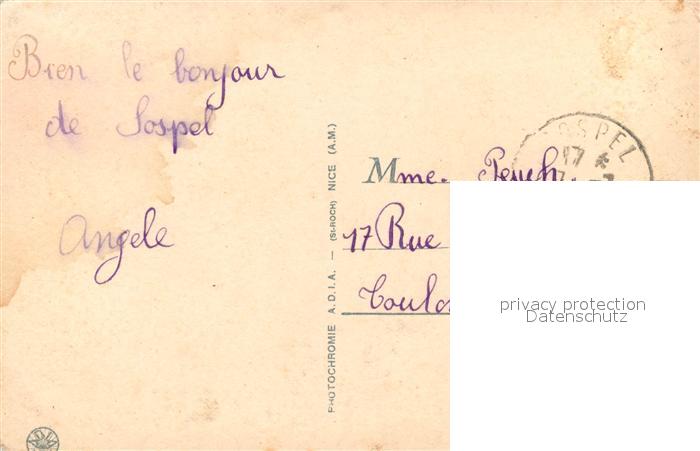 Bien le bonjour
de Sospel
Angele
PHOTOCHROMIE A.D.I.A. — (St-ROCH) NICE (A.M.)
SOSPEL
17
Mme. Peuch.
17 Rue
Toulo
privacy protection
Datenschutz
ADIA